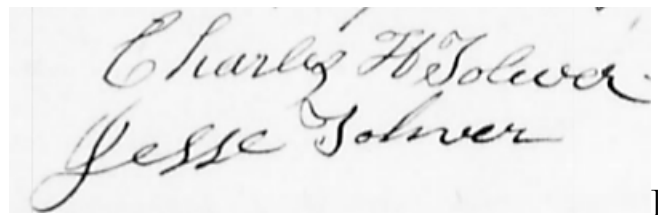 Charley H Tolwer
Jesse Tolwer